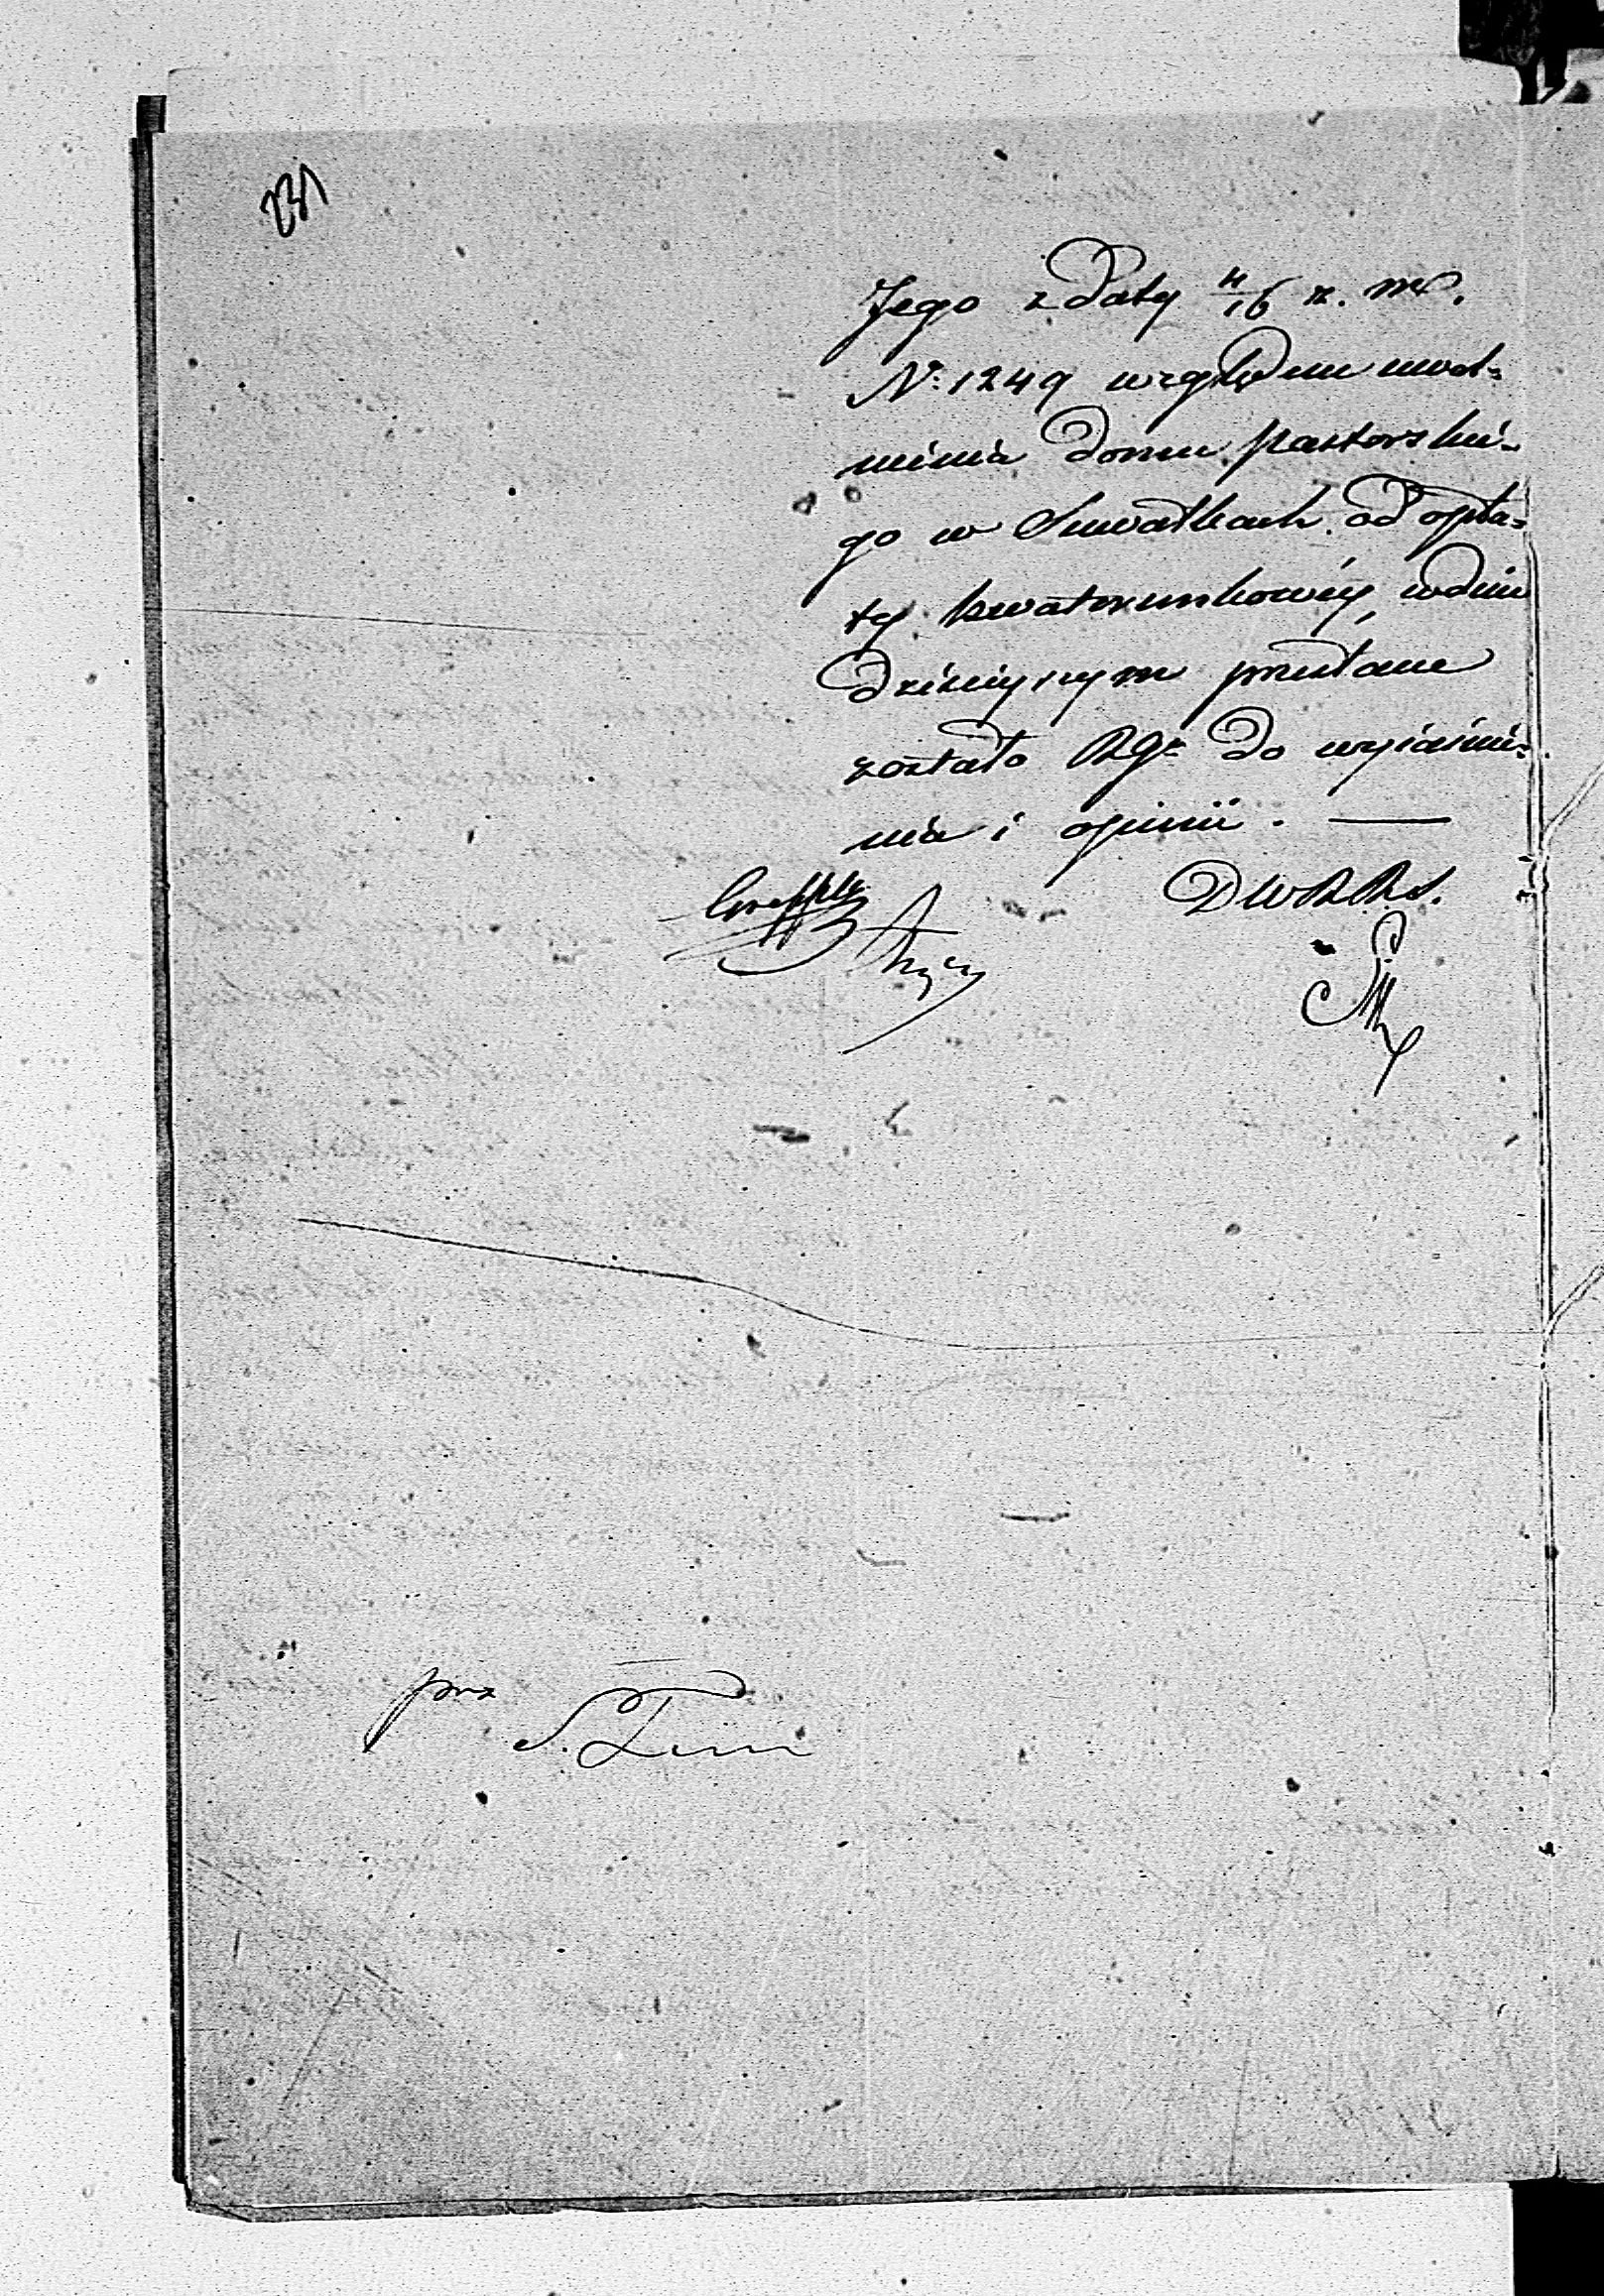 231
Jego z Daty 4/16 z. m.
N: 1249 względem uwol-
nienia Domu pastorskie-
go w Suwałkach od opła-
ty kwaterunkowéy, w dniu
Dzisieyszym przesłane
zostało RGu. Do wyiaśnie-
nia i opinii. —
DWRRS.
prz